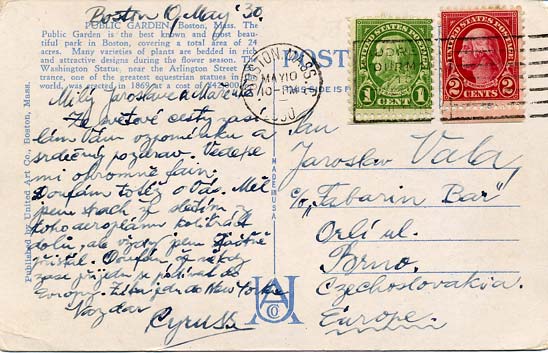 Boston 9. May '30.
PUBLIC GARDEN, Boston, Mass. The
Public Garden is the best known and most beau-
tiful park in Boston, covering a total of 24
acres. Many varieties of plants are bedded in rich
and attractive designs during the flower season. The
Washington Statue, near the Arlington Street
trance, one of the greatest equestrian statues in
world, was erected in 1869 at a cost of $42,000.
Milý Jaroslave a Mařenko
Ze světové cesty zasí-
lám Vám vzpomínku a
srdečný pozdrav. Vede se
mi ohromně fain.
Doufám totéž o Vás. Měl
jsem strach že slétím z
toho aeroplánu kolikrát
dolů, ale vždy jsem šťastně
přistál. Doufám, že někdy
zase přijedu se podívat do
Evropy. Zítra jedu do New Yorku
Nazdar
Cyruss
Published by United Art Co., Boston, Mass.
MADE IN USA
POST
THIS SIDE
BOSTON, MASS.
MAY 10
10-PM
1930
UNITED STATES POSTAGE
1 CENT 1
UNITED STATES POSTAGE
2 CENTS 2
UA Co
Pan
Jaroslav Vala,
c/o „Tabarin Bar"
Orlí ul.
Brno.
Czechoslovakia.
Europe.